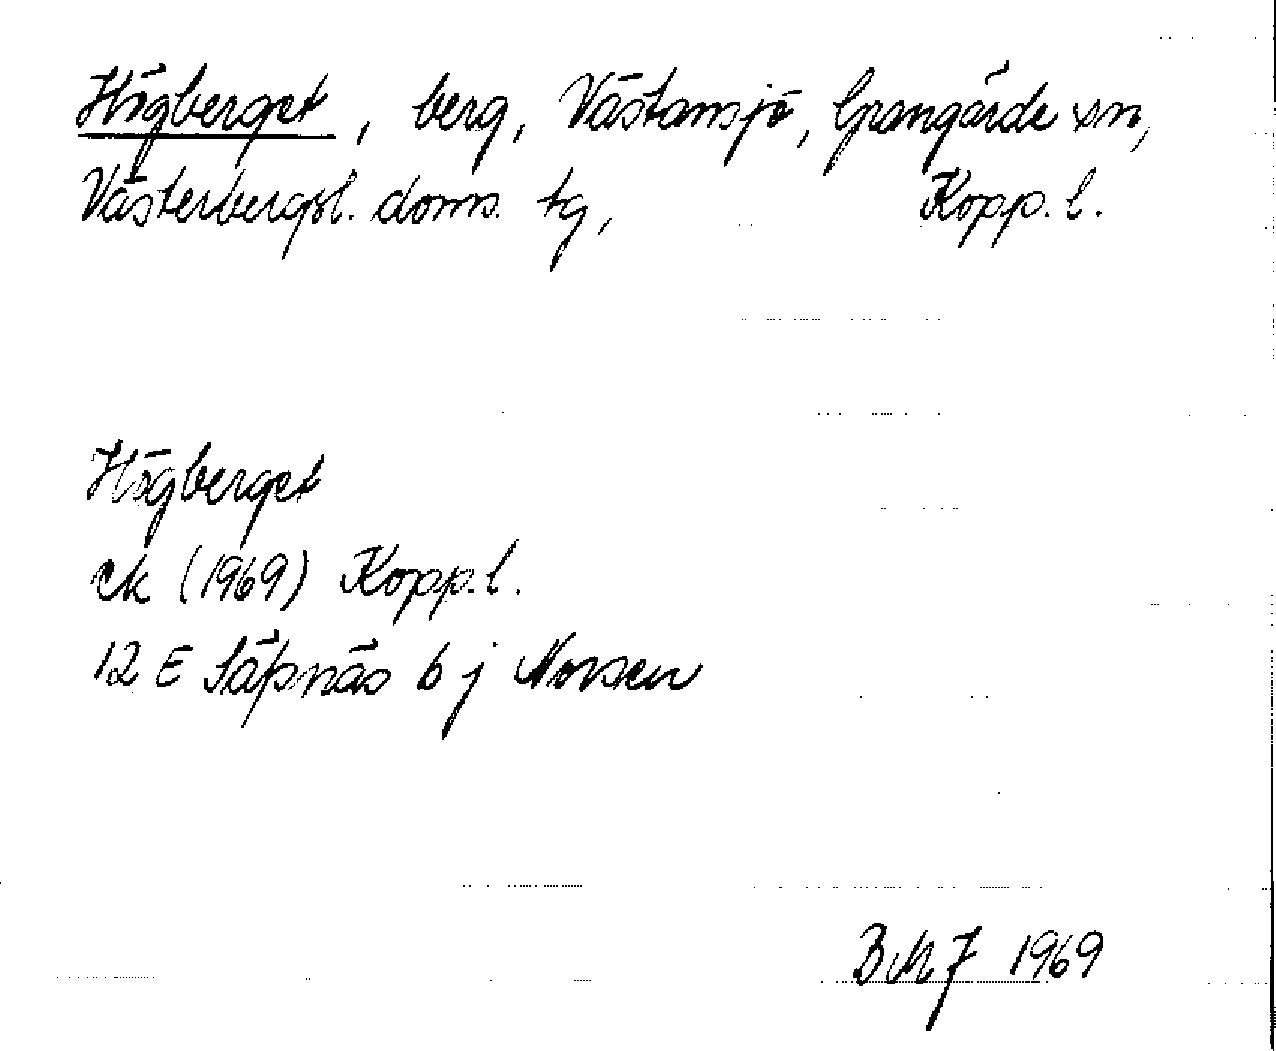 Högberget, berg, Västansjö, Grangärde sn,
Västerbergsl. doms. tg, Kopp. l.
Högberget
ek (1969) Kopp. l.
12 E Säfsnäs 6 j Norsen
BMF 1969